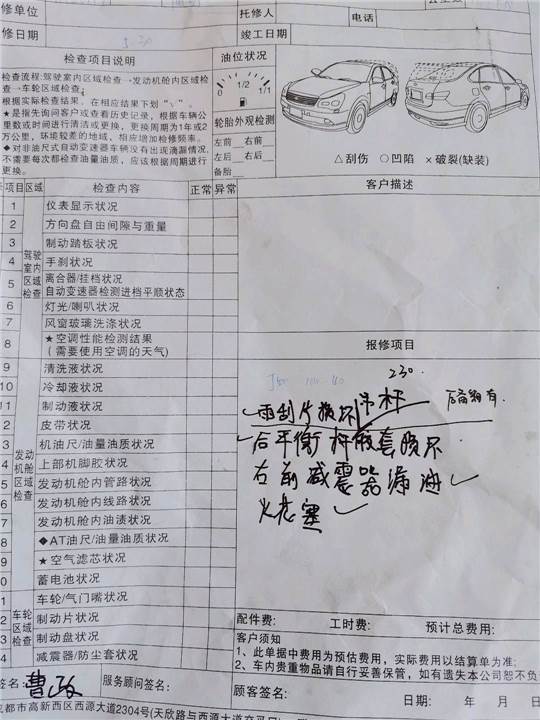 修单位
托修人
电话
修日期 5.30
竣工日期
检查项目说明
油位状况
检查流程:驾驶室内区域检查→发动机舱内区域检
查→车轮区域检查。
根据实际检查结果，在相应结果下划"√"。
★是指先询问客户或查看历史记录，根据车辆公
里数或时间进行清洁或更换，更换周期为1年或2
万公里，环境较差的地域，相应增加检修频率。
◆对非油尺式自动变速器车辆没有出现滴漏情况，
不需要每次都检查油量油质，应该根据周期进行
更换。
0 1/2 1/1
轮胎外观检测
左前 右前
左后 右后
备胎
△刮伤 ○凹陷 ×破裂(缺装)
项目 区域 检查内容 正常 异常
客户描述
驾驶室内区域检查
1 仪表显示状况
2 方向盘自由间隙与重量
3 制动踏板状况
4 手刹状况
5 离合器/挂档状况
自动变速器检测进档平顺状态
6 灯光/喇叭状况
7 风窗玻璃洗涤状况
8 ★空调性能检测结果
(需要使用空调的天气)
报修项目
发动机舱区域检查
9 清洗液状况
10 冷却液状况
11 制动液状况
2 皮带状况
3 机油尺/油量油质状况
4 上部机脚胶状况
5 发动机舱内管路状况
6 发动机舱内线路状况
7 发动机舱内油渍状况
8 ◆AT油尺/油量油质状况
9 ★空气滤芯状况
0 蓄电池状况
230.
雨刮片损坏 吊杆
后平衡杆胶套损坏
右前减震器漏油
火花塞
车轮区域检查
1 车轮/气门嘴状况
2 制动片状况
3 制动盘状况
4 减震器/防尘套状况
配件费: 工时费: 预计总费用:
客户须知
1、此单据中费用为预估费用，实际费用以结算单为准.
2、车内贵重物品请自行妥善保管，如有遗失本公司恕不负
签名: 服务顾问签名:
顾客签名: 日期: 年 月 日
成都市高新西区西源大道2304号(天欣路与西源大道交